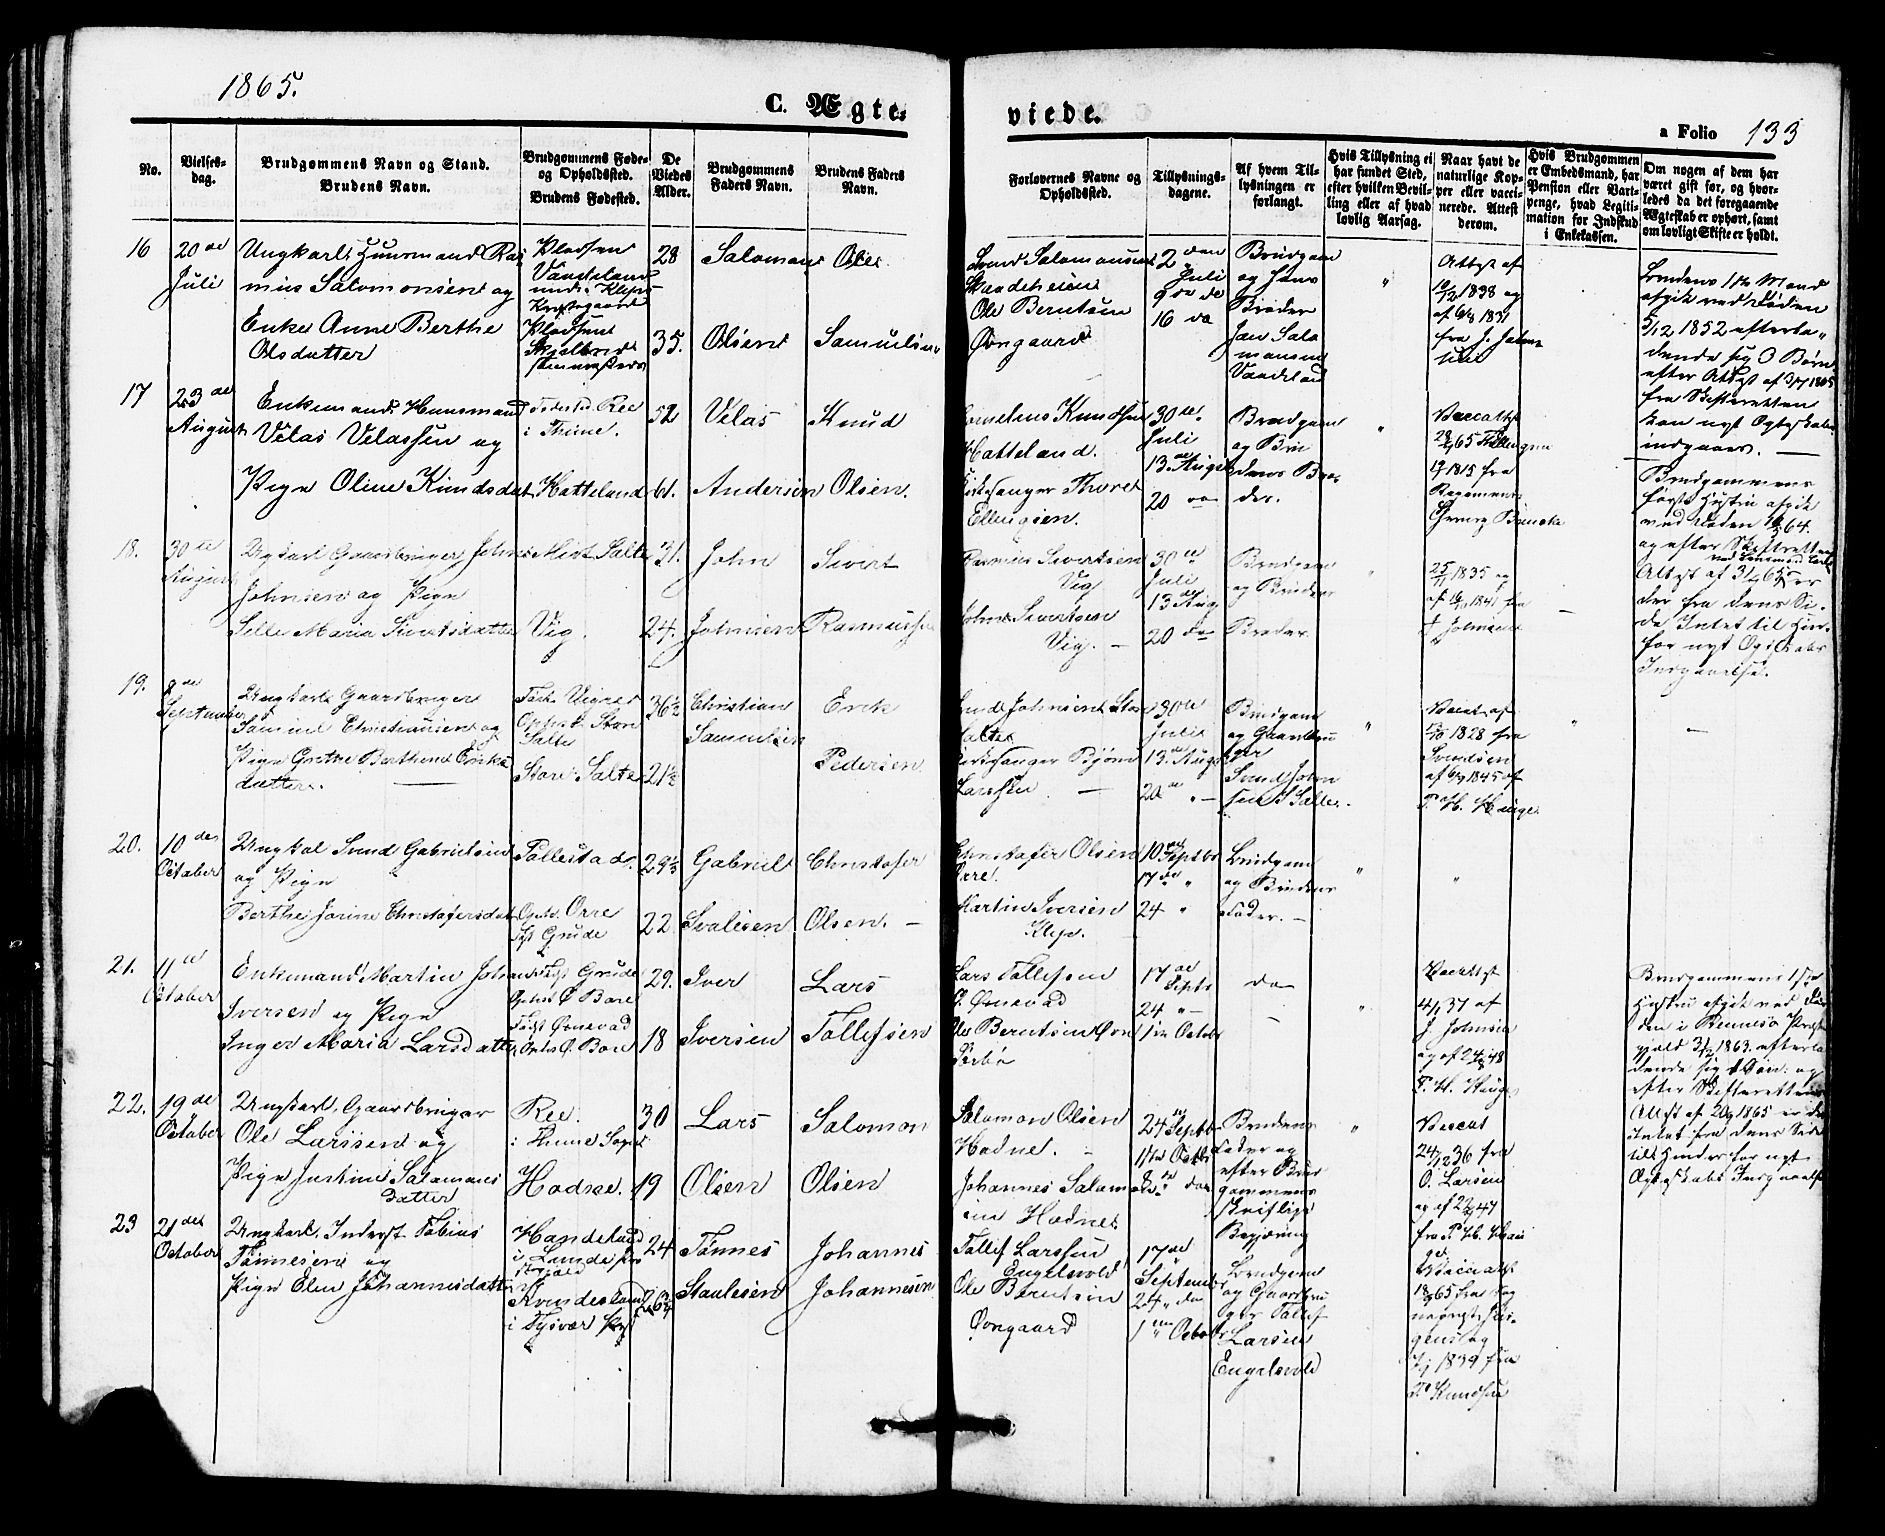 1865.
C. Ægte-
viede.
a Folio 133
No.
Vielses-
dag.
Brudgommens Navn og Stand.
Brudens Navn.
Brudgommens Føde-
og Opholdssted.
Brudens Fødested.
De
Viedes
Alder.
Brudgommens
Faders Navn.
Brudens Faders
Navn.
Forlovernes Navne og
Opholdssted.
Tillysnings-
dagene.
Af hvem Til-
lysningen er
forlangt.
Hvis Tillysning ei
har fundet Sted,
efter hvilken Bevil-
ling eller af hvad
lovlig Aarsag.
Naar havt de
naturlige Kop-
per eller vacci-
nerede. Attest
derom.
Hvis Brudgommen
er Embedsmand, har
Pension eller Vart-
penge, hvad Legiti-
mation for Indskud
i Enkekassen.
Om nogen af dem har
været gift før, og hvor-
ledes da det foregaaende
Ægteskab er ophørt, samt
om lovligt Skifte er holdt.
16
20de
Juli
Ungkarl Huusmand Ras
mus Salomonsen og
Enke Anne Berthe
Olsdatter
Pladsen
Pladsen
28
35.
Salomon
Olsen
Ole
Samuelsen
Svend Salomonsen
Ole Berntsen
Øvngaard
2den
Juli
9de do
16 do
Brudgom
og hans
Broder
Jan Salo
monsen
Attest af
1838 og
af 6/8 1831
fra J. John
sen
Brudens 1ste Mand
afgik ved Døden
5/12 1852 efterla-
dende sig 3 Børn
efter Attest af 3/7 1865
fra Skifteretten
kan nyt Ægteskab
indgaaes. —
17
23de
August
Enkemand Huusmand
Velas Velassen og
Pige Oline Knudsdat
Fødested Ree
i Thime.
Hatteland
52
61.
Velas
Andersen
Knud
Olsen.
Cornelius Knudsen
Hatteland.
Kirkesanger Thore
Ellingsen.
30te
Juli
13de Aug
20 do
Brudgom
og Bru
dens Bro
der.
1815 fra
Brudgommens
første Hustru afgik
ved Døden 64.
og efter Skifteretten
Attest af 65 er
der fra dens Si-
de Intet til Hin-
for nyt Ægteskabs
Indgaaelse.
18.
30te
August
Ungkarl Gaardbruger John
Johnsen og Pige
Sille Maria Sivertsdatter
Salte
Vig.
31.
24.
John
Johnsen
Sivert
Rasmussen
Rasmus Sivertsen
Vig
John Sivertsen
Vig. —
30te
Juli
13de Aug
20 do
Brudgom
og Brudens
Broder
1835 og
af 1841 fra
J. Johnsen
19.
8de
September
Ungkarl Gaardbruger
Samuel Christiansen og
Pige Grethe Berthine Eriks
datter. —
Opht. Store
Salte
Store Salte
36½
21½
Christian
Samuelsen
Erik
Pedersen
Svend Johnsen Store
Salte
Kirkesanger Bjørn
Larssen. —
30te
Juli
13de Aug
20de " —
Brudgom
og Gaardbru
ger
Svend John
sen S Salte.
1828 fra
Svendsen
af 1845 af
T. H. Hauge
20.
10de
October
Ungkal Svend Gabrielsen
og Pige
Berthe Jorine Christofersdat
Tollestad.
Opht. Orre
Fst Grude
29⅓
22
Gabriel
Svalesen
Christofer
Olsen. —
Christofer Olsen
Orre.
Martin Iversen
Klep.
10de Septbr
17de "
24 "
Brudgom
og Brudens
Fader. —
21.
11te
October
Enkemand Martin Johan
Iversen og Pige
Inger Maria Larsdatter
Fst Grude
Opht Ø Bore
Fst Øxnevad
Opht Ø. Bore
29.
18
Iver
Iversen
Lars
Tollefsen
Lars Tollefsen
Ø. Øxnevad
Ole Berntsen Øvn
17de
Septbr
24 " —
1ste Octobr
do
—
4/1 37 af
J. Johnsen
og af 48
T. H. Hauge
Brudgommens 1ste
Hustru afgik ved Dø
den i Rennesø Præste
gjeld 1863. efterla
dende sig 1 Søn. og
efter Skifterettens
Attest af 20/9 1865 er der
Intet fra dens Side
til Hinder for nyt
Ægteskabs Indgaaelse
22.
19de
October
Ungkarl, Gaardbruger
Ole Larssen og
Pige Justine Salamons
datter
Ree.
i Thime Sogn
Hodne.
30
19
Lars
Olsen
Salomon
Olsen
Salomon Olsen
Hodne. -
Johannes Salom
sen Hodne
24de Septbr
1ste Octbr
8de do
Brudens
Fader og
efter Brud
gommens
skriftlige
Begjæring
24/12 36 fra
O. Larsen
og af 22 47
fra T. H. Hau
ge
23
21de
October
Ungkarl, Inderst Tobias
Tønnesen og
Pige Elen Johannesdatter
i Lunde Præ
i Tysvær Præst
24
26¼
Tønnes
Staulesen
Johannes
Johannesen
Tollef Larssen
Engelsvold
Ole Berntsen
Øvngaard
17de
September
24 " do
1ste " Octobr
Brudgom
og Gaardbru
ger Tollef
Larsen
Engelsvold
65 fra Sog
nepræst
og
1839 fra
T. Knudsen